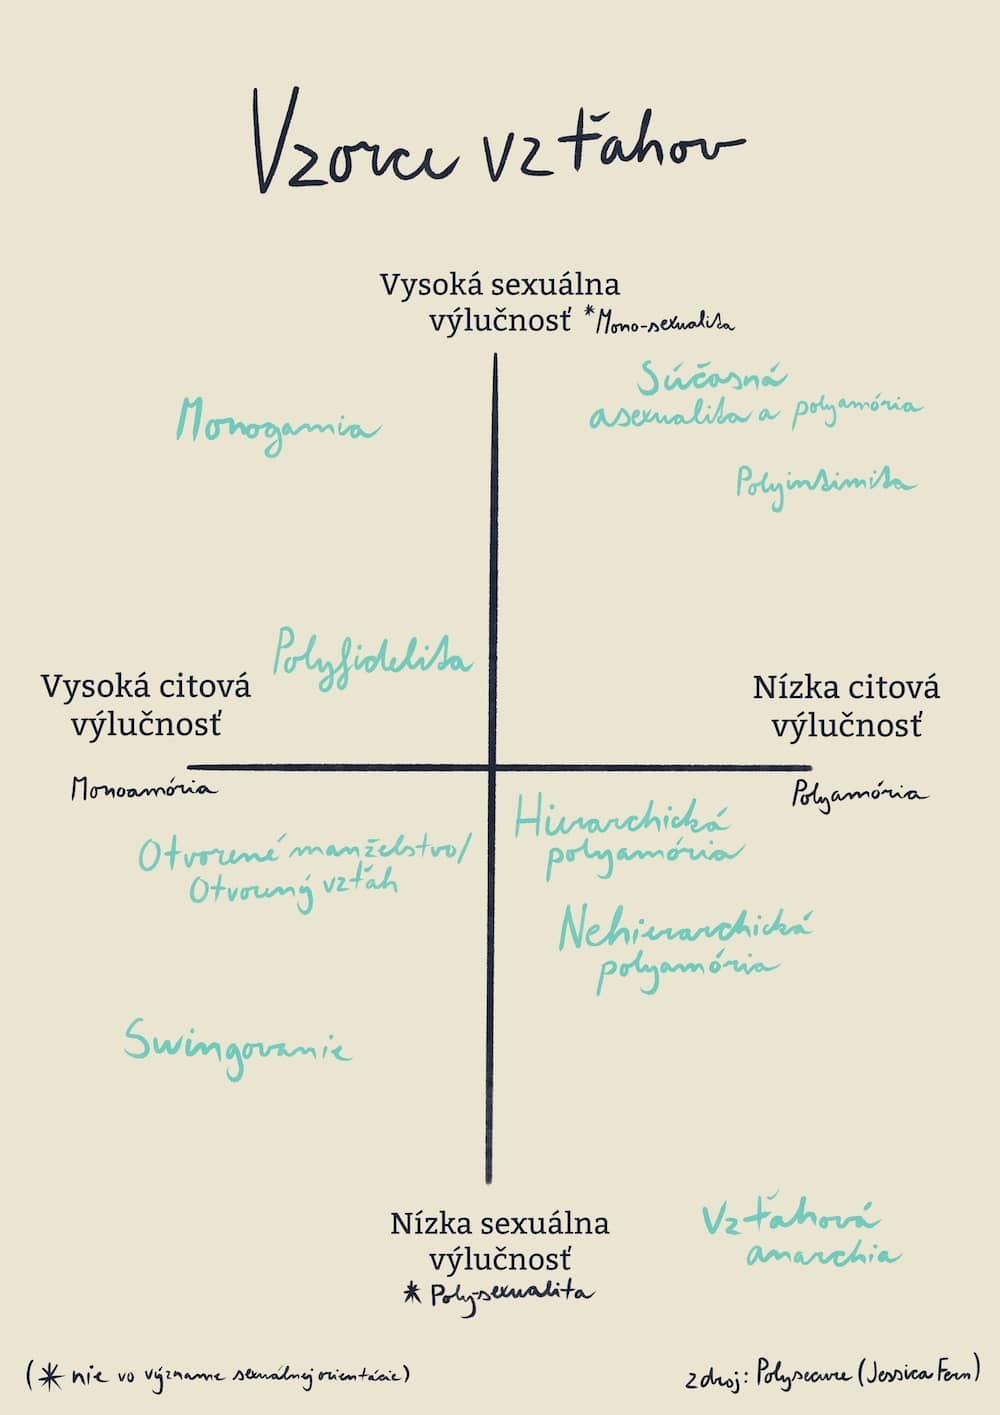 Vzorce vzťahov
Vysoká sexuálna
výlučnosť *Mono-sexualita
Monogamia
Súčasná
asexualita a polyamória
Polyintimita
Polyfidelita
Vysoká citová
výlučnosť
Monoamória
Nízka citová
výlučnosť
Polyamória
Otvorené manželstvo/
Otvorený vzťah
Hierarchická
polyamória
Nehierarchická
polyamória
Swingovanie
Nízka sexuálna
výlučnosť
* Poly-sexualita
Vzťahová
anarchia
(* nie vo význame sexuálnej orientácie)
zdroj: Polysecure (Jessica Fern)